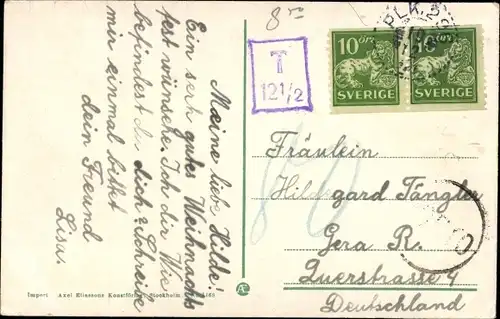 8
PLK.
T
12 1/2
10 öre
SVERIGE
10 öre
SVERIGE
Meine liebe Hilde!
Ein sehr gutes Weihnachts
fest wünsche Ich dir Wie
befindest du dich? Schreibe
mir einmal bitte
dein Freund
Fräulein
Hildegard Tängler
Gera R.
Querstrasse 4
Deutschland
Import Axel Eliassons Konstförlag, Stockholm